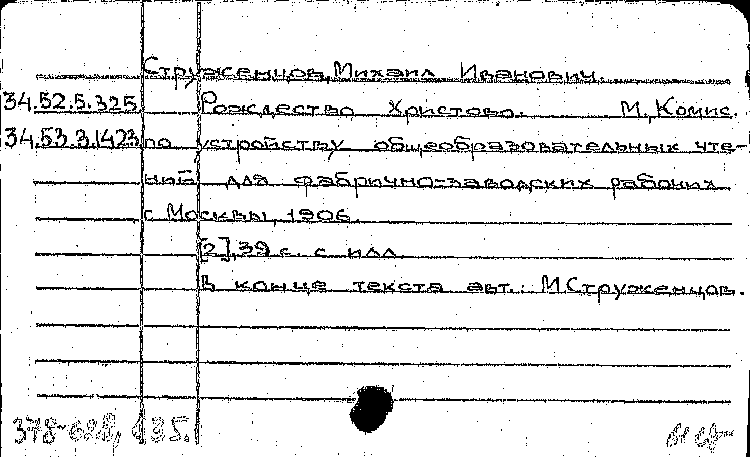 Струженцов, Михаил Иванович.
34.52.5.325 Рождество Христово. М., Комис.
34.53.3.1423 по устройству общеобразовательных чте-
ний для фабрично-заводских рабочих
г. Москвы, 1906.
[2], 39 с. с илл.
В конце текста авт.: М Струженцов.